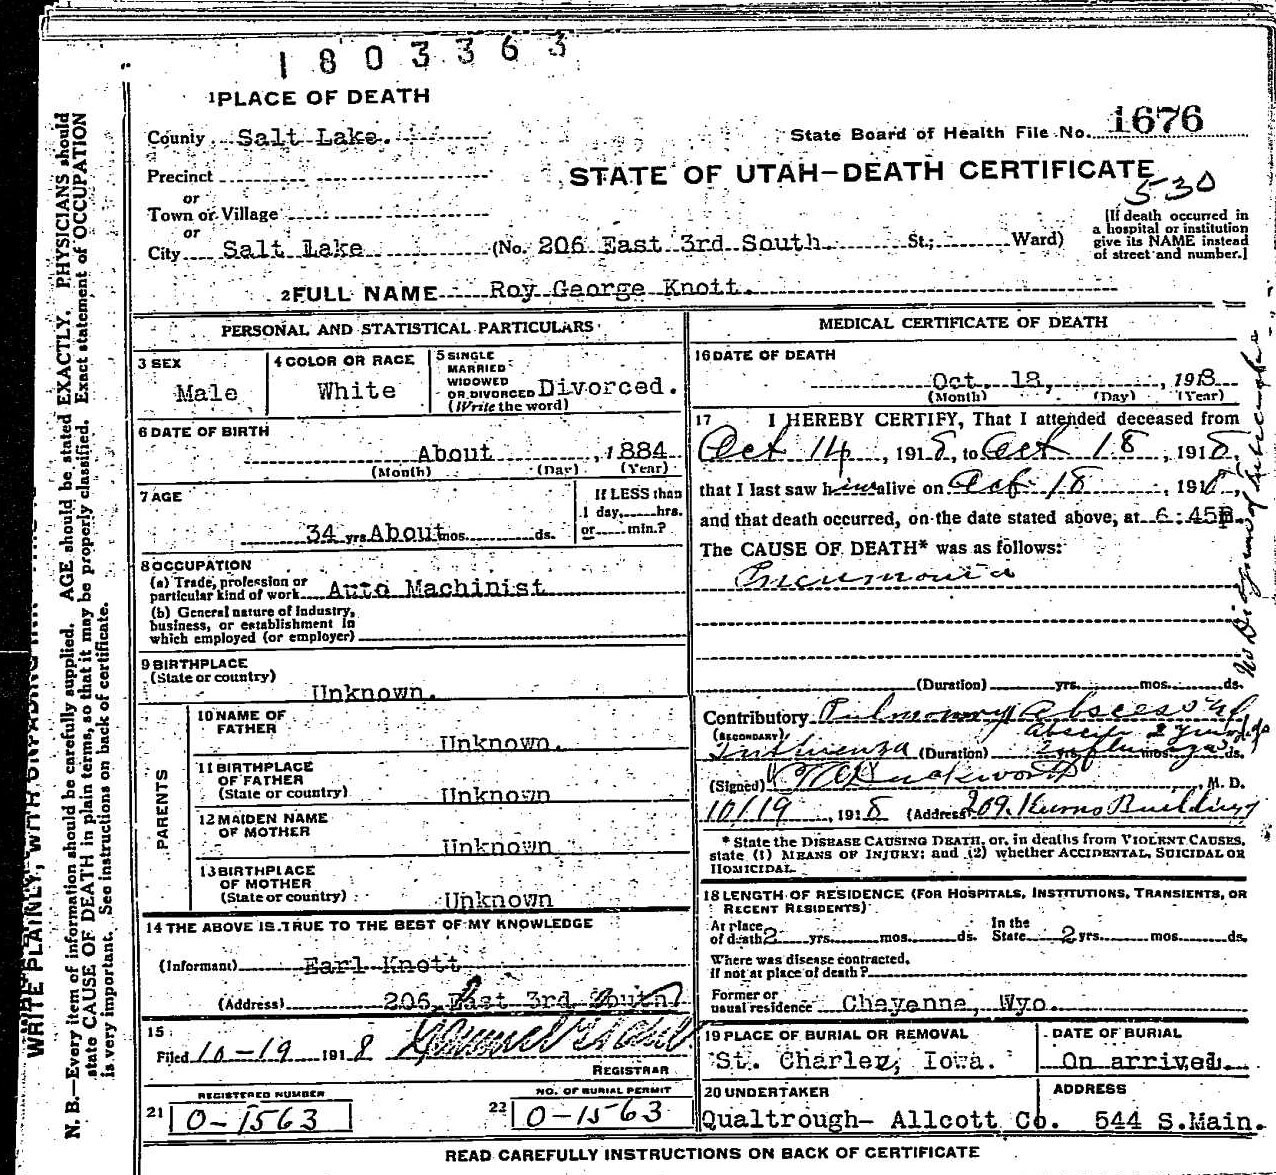 1803363
1 PLACE OF DEATH
County Salt Lake.
State Board of Health File No. 1676
Precinct
STATE OF UTAH—DEATH CERTIFICATE
530
or
Town or Village
or
City Salt Lake (No. 206 East 3rd South St.; Ward)
[If death occurred in
a hospital or institution
give its NAME instead
of street and number.]
2 FULL NAME Roy George Knott.
PERSONAL AND STATISTICAL PARTICULARS
3 SEX
Male
4 COLOR OR RACE
White
5 SINGLE
MARRIED
WIDOWED
OR DIVORCED Divorced.
(Write the word)
6 DATE OF BIRTH
About , 1884
(Month) (Day) (Year)
7 AGE
34 yrs About mos. ds.
If LESS than
1 day, hrs.
or min.?
8 OCCUPATION
(a) Trade, profession or
particular kind of work Auto Machinist
(b) General nature of Industry,
business, or establishment in
which employed (or employer)
9 BIRTHPLACE
(State or country)
Unknown.
PARENTS
10 NAME OF
FATHER
Unknown.
11 BIRTHPLACE
OF FATHER
(State or country) Unknown
12 MAIDEN NAME
OF MOTHER
Unknown
13 BIRTHPLACE
OF MOTHER
(State or country) Unknown
14 THE ABOVE IS TRUE TO THE BEST OF MY KNOWLEDGE
(Informant) Earl Knott
(Address) 206 East 3rd South
15
Filed 10-19 1918
REGISTRAR
REGISTERED NUMBER
21 0-1563
NO. OF BURIAL PERMIT
22 0-1563
MEDICAL CERTIFICATE OF DEATH
16 DATE OF DEATH
Oct. 18, , 1918
(Month) (Day) (Year)
17 I HEREBY CERTIFY, That I attended deceased from
Oct 14, 1918, to Oct 18, 1918,
that I last saw him alive on Oct 18, 1918,
and that death occurred, on the date stated above, at 6:45P.
The CAUSE OF DEATH* was as follows:
Pneumonia
(Duration) yrs. mos. ds.
Contributory Pulmonary Abscess
(SECONDARY)
Influenza (Duration) yrs. mos. ds.
(Signed) Duckworth M. D.
10/19, 1918 (Address) 209 Kearns Building
* State the DISEASE CAUSING DEATH, or, in deaths from VIOLENT CAUSES,
state (1) MEANS OF INJURY; and (2) whether ACCIDENTAL, SUICIDAL OR
HOMICIDAL.
18 LENGTH OF RESIDENCE (FOR HOSPITALS, INSTITUTIONS, TRANSIENTS, OR
RECENT RESIDENTS)
At place In the
of death 2 yrs. mos. ds. State 2 yrs. mos. ds.
Where was disease contracted,
if not at place of death?
Former or
usual residence Cheyenne, Wyo.
19 PLACE OF BURIAL OR REMOVAL
St. Charles, Iowa.
DATE OF BURIAL
On arrived.
20 UNDERTAKER
Qualtrough- Allcott Co.
ADDRESS
544 S.Main.
READ CAREFULLY INSTRUCTIONS ON BACK OF CERTIFICATE
WRITE PLAINLY, WITH UNFADING INK
N. B.—Every item of information should be carefully supplied. AGE should be stated EXACTLY. PHYSICIANS should
state CAUSE OF DEATH in plain terms, so that it may be properly classified. Exact statement of OCCUPATION
is very important. See instructions on back of certificate.